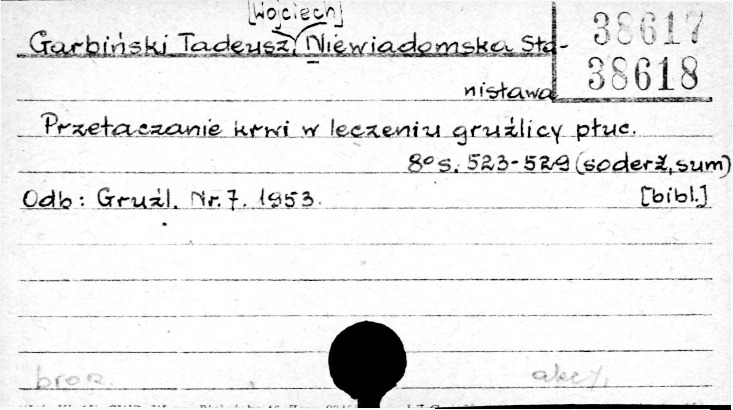 [Wojciech]
Garbiński Tadeusz, Niewiadomska Sta-
38617
38618
nisława
Przetaczanie krwi w leczeniu gruźlicy płuc.
8° s. 523-529 (soderž, sum)
Odb: Gruźl. Nr. 7. 1953. [bibl.]
brosz.